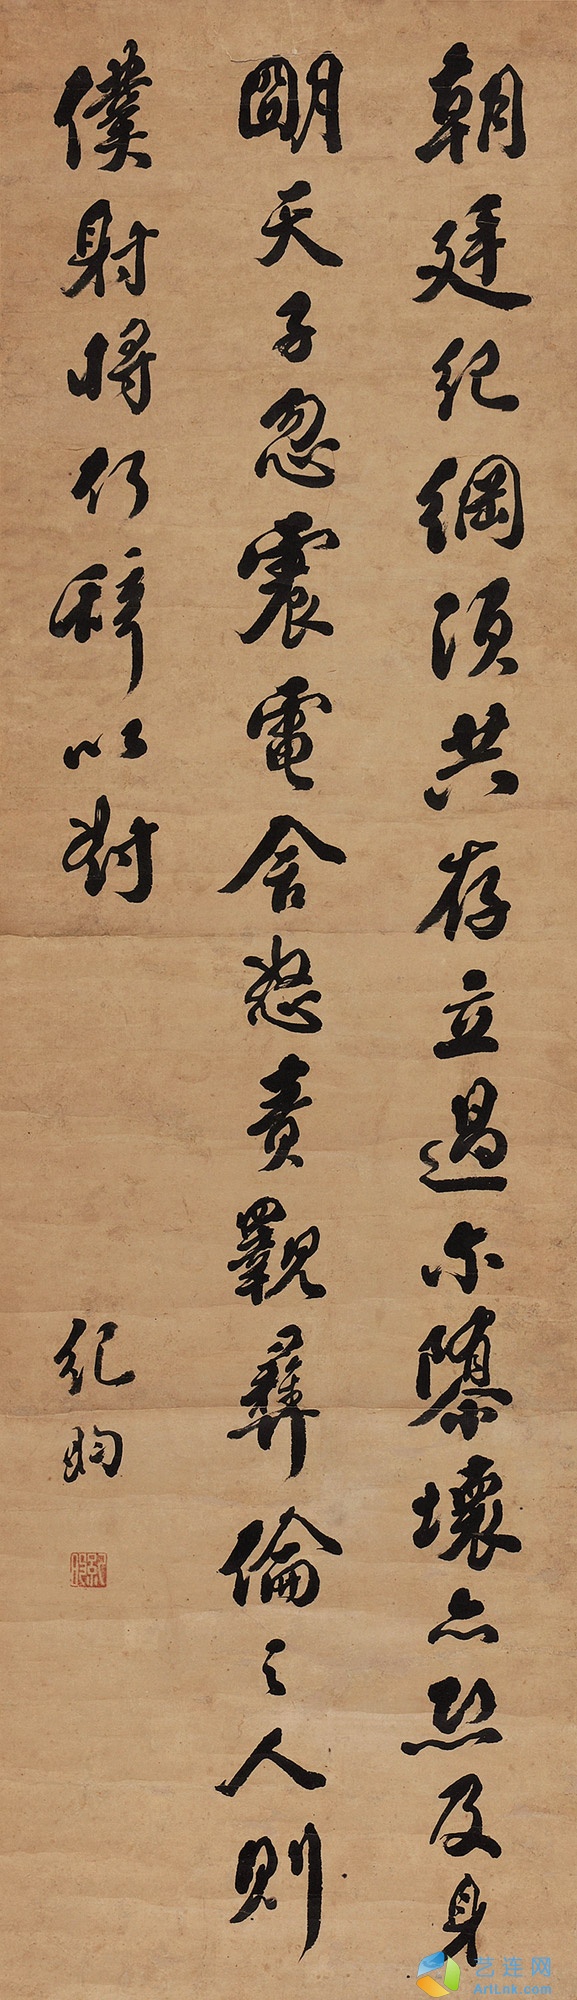 朝廷紀綱須共存立過尔隳壞亦恐及身
朙天子忽震電含怒責斁彝倫之人則
僕射將何辭以對
紀昀
艺连网
ArtLnk.com